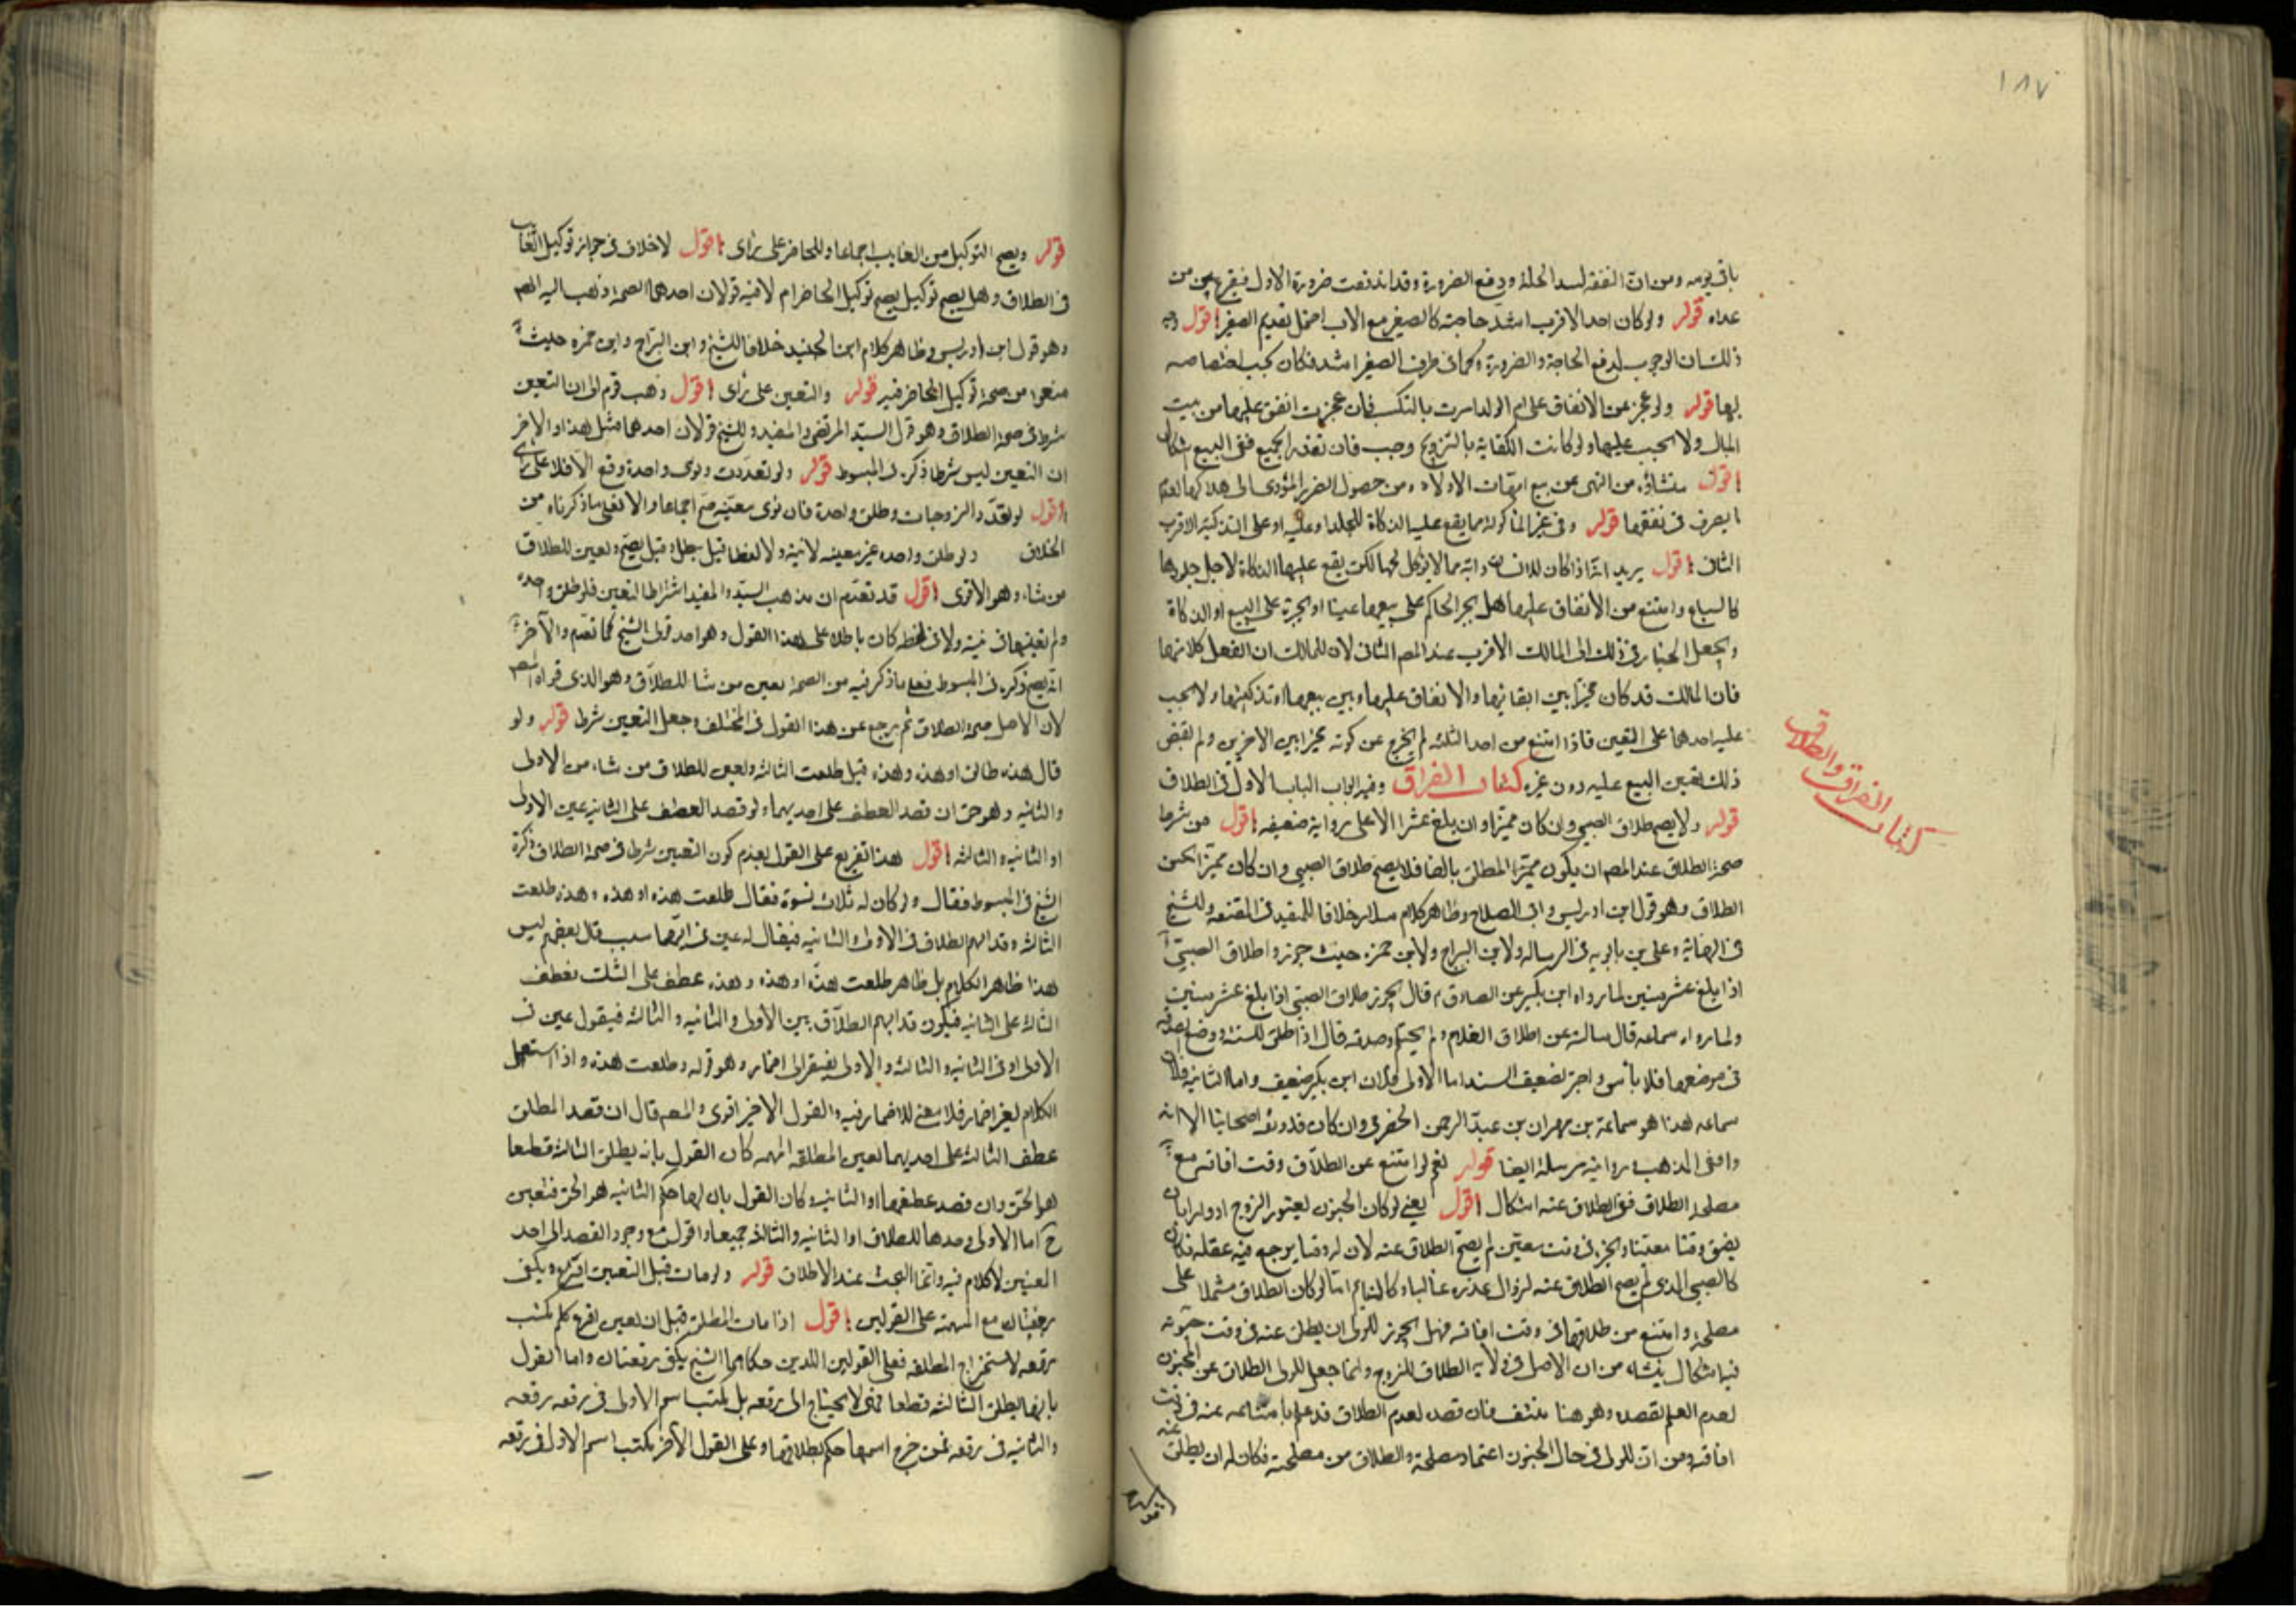 ١٨٧
باقى يومه ومن ان النفقه لسد الخلة ودفع الضرورة وقد اندفعت ضرورة الاول فيقرع بين من
عداه قوله ولو كان احد الاقرب اشد حاجته كالصغير مع الاب احتمل تقديم الصغير اقول وجه
ذلك ان الوجوب لدفع الحاجة والضرورة وكما فى طرف الصغير اشد فكان يجب اختصاصه
بها قوله ولو عجز عن الانفاق على ام الولد امرت بالتكسب فان عجزت انفق عليها من بيت
المال ولا يجب عليها ولو كانت الكفاية بالتزويج وجب فان تعذر الجميع ففى البيع اشكال
اقول منشاؤه من النهى عن بيع امهات الاولاد ومن حصول الضرر المؤدى الى هلاكها لعدم
ما يصرف فى نفقتها قوله وفى غير الماكولة مما يقع عليه الذكاة للجلد او عليه او على التذكية الاقرب
الثانى اقول يريد انه اذا كان للانسان دابه مما لا يوكل لحمها لكن يقع عليها الذكاة لاجل جلودها
كالسباع وامتنع من الانفاق عليها هل يجبر الحاكم على بيعها عينا او يجبره على البيع او الذكاة
ويجعل الخيار فى ذلك الى المالك الاقرب عند المصم الثانى لان للمالك ان يفعل كلا منهما
فان المالك قد كان مخيرا بين ابقائها والانفاق عليها وبين بيعها او تذكيتها ولا يجب
عليه احدهما على التعين فاذا امتنع من احد الثلثه لم يخرج عن كونه مخيرا بين الاخرين ولم نقض
ذلك تعين البيع عليه دون غيره كتاب الفراق وفيه ابواب الباب الاول فى الطلاق
قوله ولا يصح طلاق الصبى وان كان مميزا وان بلغ عشرا الا على رواية ضعيفه اقول من شرط
صحة الطلاق عند المصم ان يكون مميزا المطلق بالغا فلا يصح طلاق الصبى وان كان مميزا يحسن
الطلاق وهو قول ابن ادريس وابى الصلاح وظاهر كلام سلار خلافا للمفيد فى المقنعه وللشيخ
فى النهاية وعلى بن بابويه فى الرساله ولابن البراج ولابن حمزه حيث جوزوا طلاق الصبى
اذا بلغ عشر سنين لما رواه ابن بكير عن الصادق ع قال يجوز طلاق الصبى اذا بلغ عشر سنين
ولما رواه سماعه قال سالته عن طلاق الغلام ولم يحتلم وصدقه قال اذا طلق للسنة ووضع الصدقه
فى موضعها فلا باس واجيب بضعف السند اما الاولى فلان ابن بكير ضعيف واما الثانيه فلان
سماعه هذا هو سماعة بن مهران بن عبد الرحمن الحضرمى وان كان قد وثقه اصحابنا الا انه
واقفى المذهب روايته مرسلة ايضا قوله نعم لو امتنع عن الطلاق وقت افاقته مع
مصلحة الطلاق ففى الطلاق عنه اشكال اقول يعنى لو كان الجنون يعتور الزوج ادوارا بان
يفيق وقتا معينا ويجن فى وقت معين لم يصح الطلاق عنه لان له وقتا يرجع فيه عقله فكان
كالصبى الذى لم يصح الطلاق عنه لزوال عذره غالبا وكالنايم اما لو كان الطلاق مشتملا على
مصلحة وامتنع من طلاقها فى وقت افاقته فهل يجوز للولى ان يطلق عنه فى وقت جنونه
فيه اشكال ينشاء من ان الاصل فى ولاية الطلاق للزوج وانما جعل للولى الطلاق عن المجنون
لعدم العلم بقصده وهو هنا منتف فان قصده لعدم الطلاق قد علم بامتناعه عنه فى وقت
افاقته ومن ان للولى فى حال الجنون اعتماد مصلحة والطلاق من مصلحته فكان له ان يطلق عنه
كتاب الفراق والطلاق
قوله ويصح التوكيل من الغايب اجماعا وللحاضر على راى اقول لا خلاف فى جواز توكيل الغايب
فى الطلاق وهل يصح توكيل يصح توكيل الحاضر ام لا فيه قولان احدهما الصحة وذهب اليه المصم
وهو قول ابن ادريس وظاهر كلام ابن الجنيد خلافا للشيخ وابن البراج وابن حمزه حيث
منعوا من صحة توكيل الحاضر فيه قوله والتعين على راى اقول ذهب قوم الى ان التعين
شرط فى صحة الطلاق وهو قول السيد المرتضى والمفيد وللشيخ قولان احدهما مثل هذا والاخر
ان التعين ليس شرطا ذكره فى المبسوط قوله ولو تعددت ونوى واحدة وقع والا فلا على راى
اقول لو تعدد الزوجات وطلق واحدة فان نوى معينه صح اجماعا والا فعلى ما ذكرناه من
الخلاف ولو طلق واحده غير معينه لا نية ولا لفظا قيل بطل وقيل يصح ويعين للطلاق
من شاء وهو الاقوى اقول قد تقدم ان مذهب السيد والمفيد اشتراط التعين فلو طلق واحده
ولم يعينها فى نيته ولا فى لفظه كان باطلا على هذا القول وهو احد قولى الشيخ كما تقدم والآخر
انه يصح ذكره فى المبسوط فعلى ما ذكر فيه من الصحة يعين من شا للطلاق وهو الذى قواه المصم
لان الاصل صحة الطلاق ثم رجع عن هذا القول فى المختلف وجعل التعين شرط قوله ولو
قال هذه طالق او هذه وهذه قيل طلقت الثالثه ويعين للطلاق من شاء من الاولى
والثانيه وهو حق ان قصد العطف على احديهما ولو قصد العطف على الثانيه عين الاولى
او الثانيه والثالثه اقول هذا تفريع على القول بعدم كون التعين شرط فى صحة الطلاق ذكره
الشيخ فى المبسوط فقال ولو كان له ثلاث نسوة فقال طلقت هذه او هذه وهذه طلقت
الثالثه وقد ابهم الطلاق فى الاولى والثانيه فيقال له عين فى ايهما شيت قال بعضهم ليس
هذا ظاهر الكلام بل ظاهر طلقت هذه او هذه وهذه عطف على الشك فعطف
الثالثه على الثانيه فيكون قد ابهم الطلاق بين الاولى والثانيه والثالثه فيقول عين فى
الاولى او فى الثانيه والثالثه والاولى يفتقر الى اضمار وهو قوله وطلقت هذه واذا استعمل
الكلام لغير اضمار فلا معنى للاضمار فيه والقول الاخير اقوى والمصم قال ان قصد المطلق
عطف الثالثه على احديهما لعين المطلقه المبهمه كان القول بانه يطلق الثالثه قطعا
هو الحق وان قصد عطفها او الثانيه وكان القول بان لها حكم الثانيه هو الحق فتعين
ح اما الاولى وحدها للطلاق او الثانيه والثالثه جميعا واقول مع وجود القصد الى احد
المعنيين لا كلام فيه وانما البحث عند الاطلاق قوله ولو مات قبل التعين اقرع ويكفى
رقعتان مع المبهمة على القولين اقول اذا مات المطلق قبل ان يعين اقرع كلم يكتب
رقعه لاستخراج المطلقه فعلى القولين اللذين حكاهما الشيخ يكفى رقعتان واما القول
بانها يطلق الثالثه قطعا فهى لا يحتاج الى رقعه بل يكتب اسم الاولى فى رقعه برقعه
والثانيه فى رقعه فمن خرج اسمها حكم بطلاقها وعلى القول الآخر يكتب اسم الاولى فى رقعه